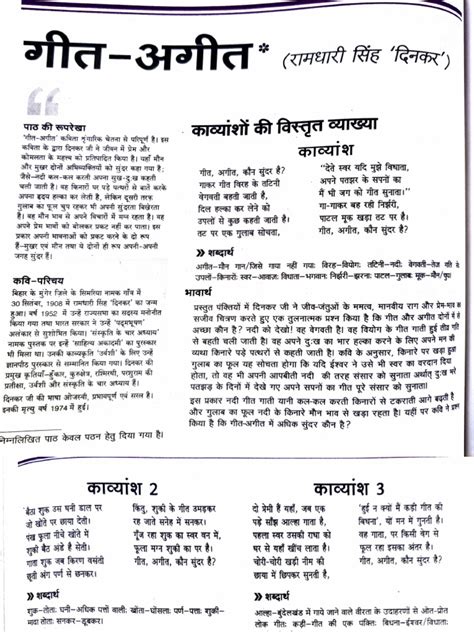 गीत-अगीत* (रामधारी सिंह 'दिनकर')
पाठ की रूपरेखा
'गीत-अगीत' कविता शृंगारिक चेतना से परिपूर्ण है। इस
कविता के द्वारा दिनकर जी ने जीवन में प्रेम और
कोमलता के महत्त्व को प्रतिपादित किया है। यहाँ मौन
और मुखर दोनों अभिव्यक्तियों को सुंदर कहा गया है;
जैसे-नदी कल-कल करती अपना सुख-दुःख कहती
चली जाती है। वह किनारों पर पड़े पत्थरों से बातें करके
अपना हृदय हल्का कर लेती है, लेकिन दूसरी तरफ
गुलाब का फूल चुप रहकर भी अपनी सुंदरता बिखेरता
है। वह मौन भाव से अपने विचारों में मग्न रहता है। वह
अपने प्रेम भावों को बोलकर प्रकट नहीं कर पाता। इस
प्रकार अपनी भावनाओं को प्रकट करने के दो रूप
हैं-मुखर एवं मौन तथा ये दोनों ही रूप अपनी-अपनी
जगह सुंदर हैं।
कवि-परिचय
बिहार के मुंगेर जिले के सिमरिया नामक गाँव में
30 सितंबर, 1908 में रामधारी सिंह 'दिनकर' का जन्म
हुआ। वर्ष 1952 में उन्हें राज्यसभा का सदस्य मनोनीत
किया गया तथा भारत सरकार ने उन्हें 'पद्मभूषण'
अलंकार से सुशोभित किया। 'संस्कृति के चार अध्याय'
नामक पुस्तक पर इन्हें 'साहित्य अकादमी' का पुरस्कार
भी मिला था। उनकी काव्यकृति 'उर्वशी' के लिए उन्हें
ज्ञानपीठ पुरस्कार से सम्मानित किया गया। दिनकर की
प्रमुख कृतियाँ-हुंकार, कुरुक्षेत्र, रश्मिरथी, परशुराम की
प्रतीक्षा, उर्वशी और संस्कृति के चार अध्याय हैं।
दिनकर जी की भाषा ओजस्वी, प्रभावपूर्ण एवं सरल है।
इनकी मृत्यु वर्ष 1974 में हुई।
निम्नलिखित पाठ केवल पठन हेतु दिया गया है।
काव्यांशों की विस्तृत व्याख्या
काव्यांश
गीत, अगीत, कौन सुंदर है?
गाकर गीत विरह के तटिनी
वेगवती बहती जाती है,
दिल हल्का कर लेने को
उपलों से कुछ कहती जाती है।
तट पर एक गुलाब सोचता,
"देते स्वर यदि मुझे विधाता,
अपने पतझर के सपनों का
मैं भी जग को गीत सुनाता।"
गा-गाकर बह रही निर्झरी,
पाटल मूक खड़ा तट पर है।
गीत, अगीत, कौन सुंदर है?
» शब्दार्थ
अगीत-मौन गान/जिसे गाया नहीं गया; विरह-वियोग; तटिनी-नदी; वेगवती-तेज गति से
उपलों-किनारों; स्वर-आवाज; विधाता-भगवान; निर्झरी-झरना; पाटल-गुलाब; मूक-मौन/चुप।
भावार्थ
प्रस्तुत पंक्तियों में दिनकर जी ने जीव-जंतुओं के ममत्व, मानवीय राग और प्रेम-भाव का
सजीव चित्रण करते हुए एक तुलनात्मक प्रश्न किया है कि गीत और अगीत दोनों में से
अच्छा कौन है? नदी को देखो! वह वेगवती है। वह वियोग के गीत गाती हुई तीव्र गति
से बहती चली जाती है। वह अपने दुःख का भार हल्का करने के लिए अपने मन की
व्यथा किनारे पड़े पत्थरों से कहती जाती है। कवि के अनुसार, किनारे पर खड़ा हुआ
गुलाब का फूल यह सोचता होगा कि यदि ईश्वर ने उसे भी स्वर का वरदान दिया
होता, तो वह भी अपनी आपबीती नदी की तरह संसार को सुनाता। अर्थात् वह भी अपने
पतझड़ के दिनों में देखे गए अपने सपनों का गीत पूरे संसार को सुनाता!
इस प्रकार नदी गीत गाती यानी कल-कल करती किनारों से टकराती आगे बढ़ती है
और गुलाब का फूल नदी के किनारे मौन भाव से खड़ा रहता है। यहाँ पर कवि ने प्रश्न
किया है कि गीत-अगीत में अधिक सुंदर कौन है?
काव्यांश 2
'बैठा शुक उस घनी डाल पर
जो खोंते पर छाया देती।
पंख फुला नीचे खोंते में
शुकी बैठ अंडे है सेती।
गाता शुक जब किरण वसंती
छूती अंग पर्ण से छनकर।
किंतु, शुकी के गीत उमड़कर
रह जाते सनेह में सनकर।
गूँज रहा शुक का स्वर वन में,
फूला मग्न शुकी का पर है।
गीत, अगीत, कौन सुंदर है?
» शब्दार्थ
शुक-तोता; घनी-अधिक पत्तों वाली; खोंता-घोंसला; पर्ण-पत्ता; शुकी-
मादा तोता; सनकर-डूबकर।
काव्यांश 3
दो प्रेमी हैं यहाँ, जब एक
बड़े साँझ आल्हा गाता है,
पहला स्वर उसकी राधा को
घर से यहाँ खींच लाता है।
चोरी-चोरी खड़ी नीम की
छाया में छिपकर सुनती है,
'हुई न क्यों मैं कड़ी गीत की
बिधना', यों मन में गुनती है।
वह गाता, पर किसी वेग से
फूल रहा इसका अंतर है।
गीत, अगीत, कौन सुंदर है?
» शब्दार्थ
आल्हा-बुंदेलखंड में गाये जाने वाले वीरता के उदाहरणों से ओत-प्रोत
गीत; कड़ी-गीत की एक पंक्ति; बिधना-ईश्वर/विधाता;